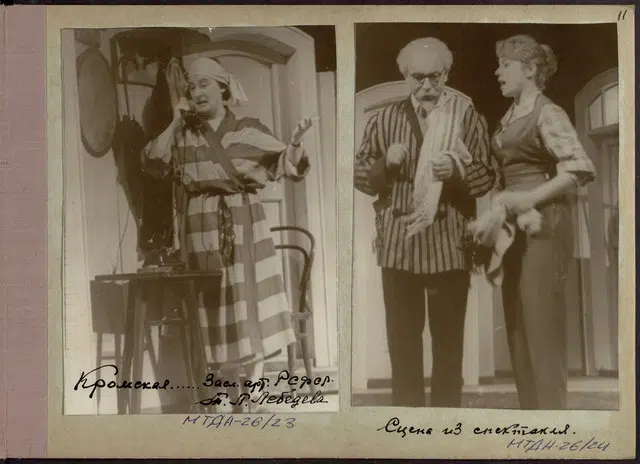 11
Кромская..... Засл. арт. РСФСР.
Т. П. Лебедева
МТДН-26/23
Сцена из спектакля.
МТДН-26/24